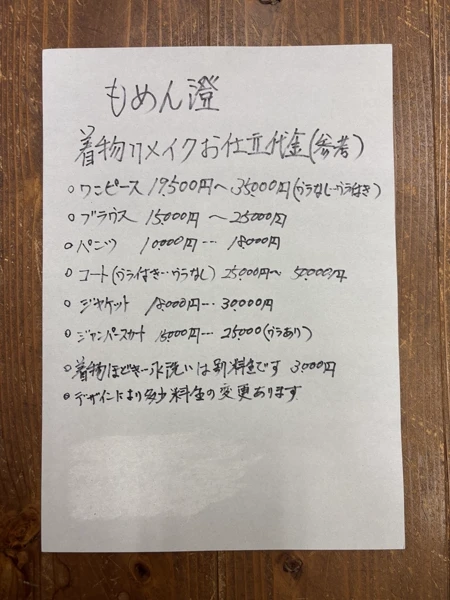 もめん澄
着物リメイクお仕立代金(参考)
○ワンピース 19,500円～35,000円(ウラなし…ウラ付き)
○ブラウス 15,000円 ～25000円
○パンツ 10,000円… 18,000円
○コート(ウラ付き…ウラなし) 25,000円～ 50,000円
○ジャケット 18,000円… 30,000円
○ジャンパースカート 15,000円… 25,000(ウラあり)
○着物ほどき…水洗いは別料金です 3000円
○デザインにより多少料金の変更あります